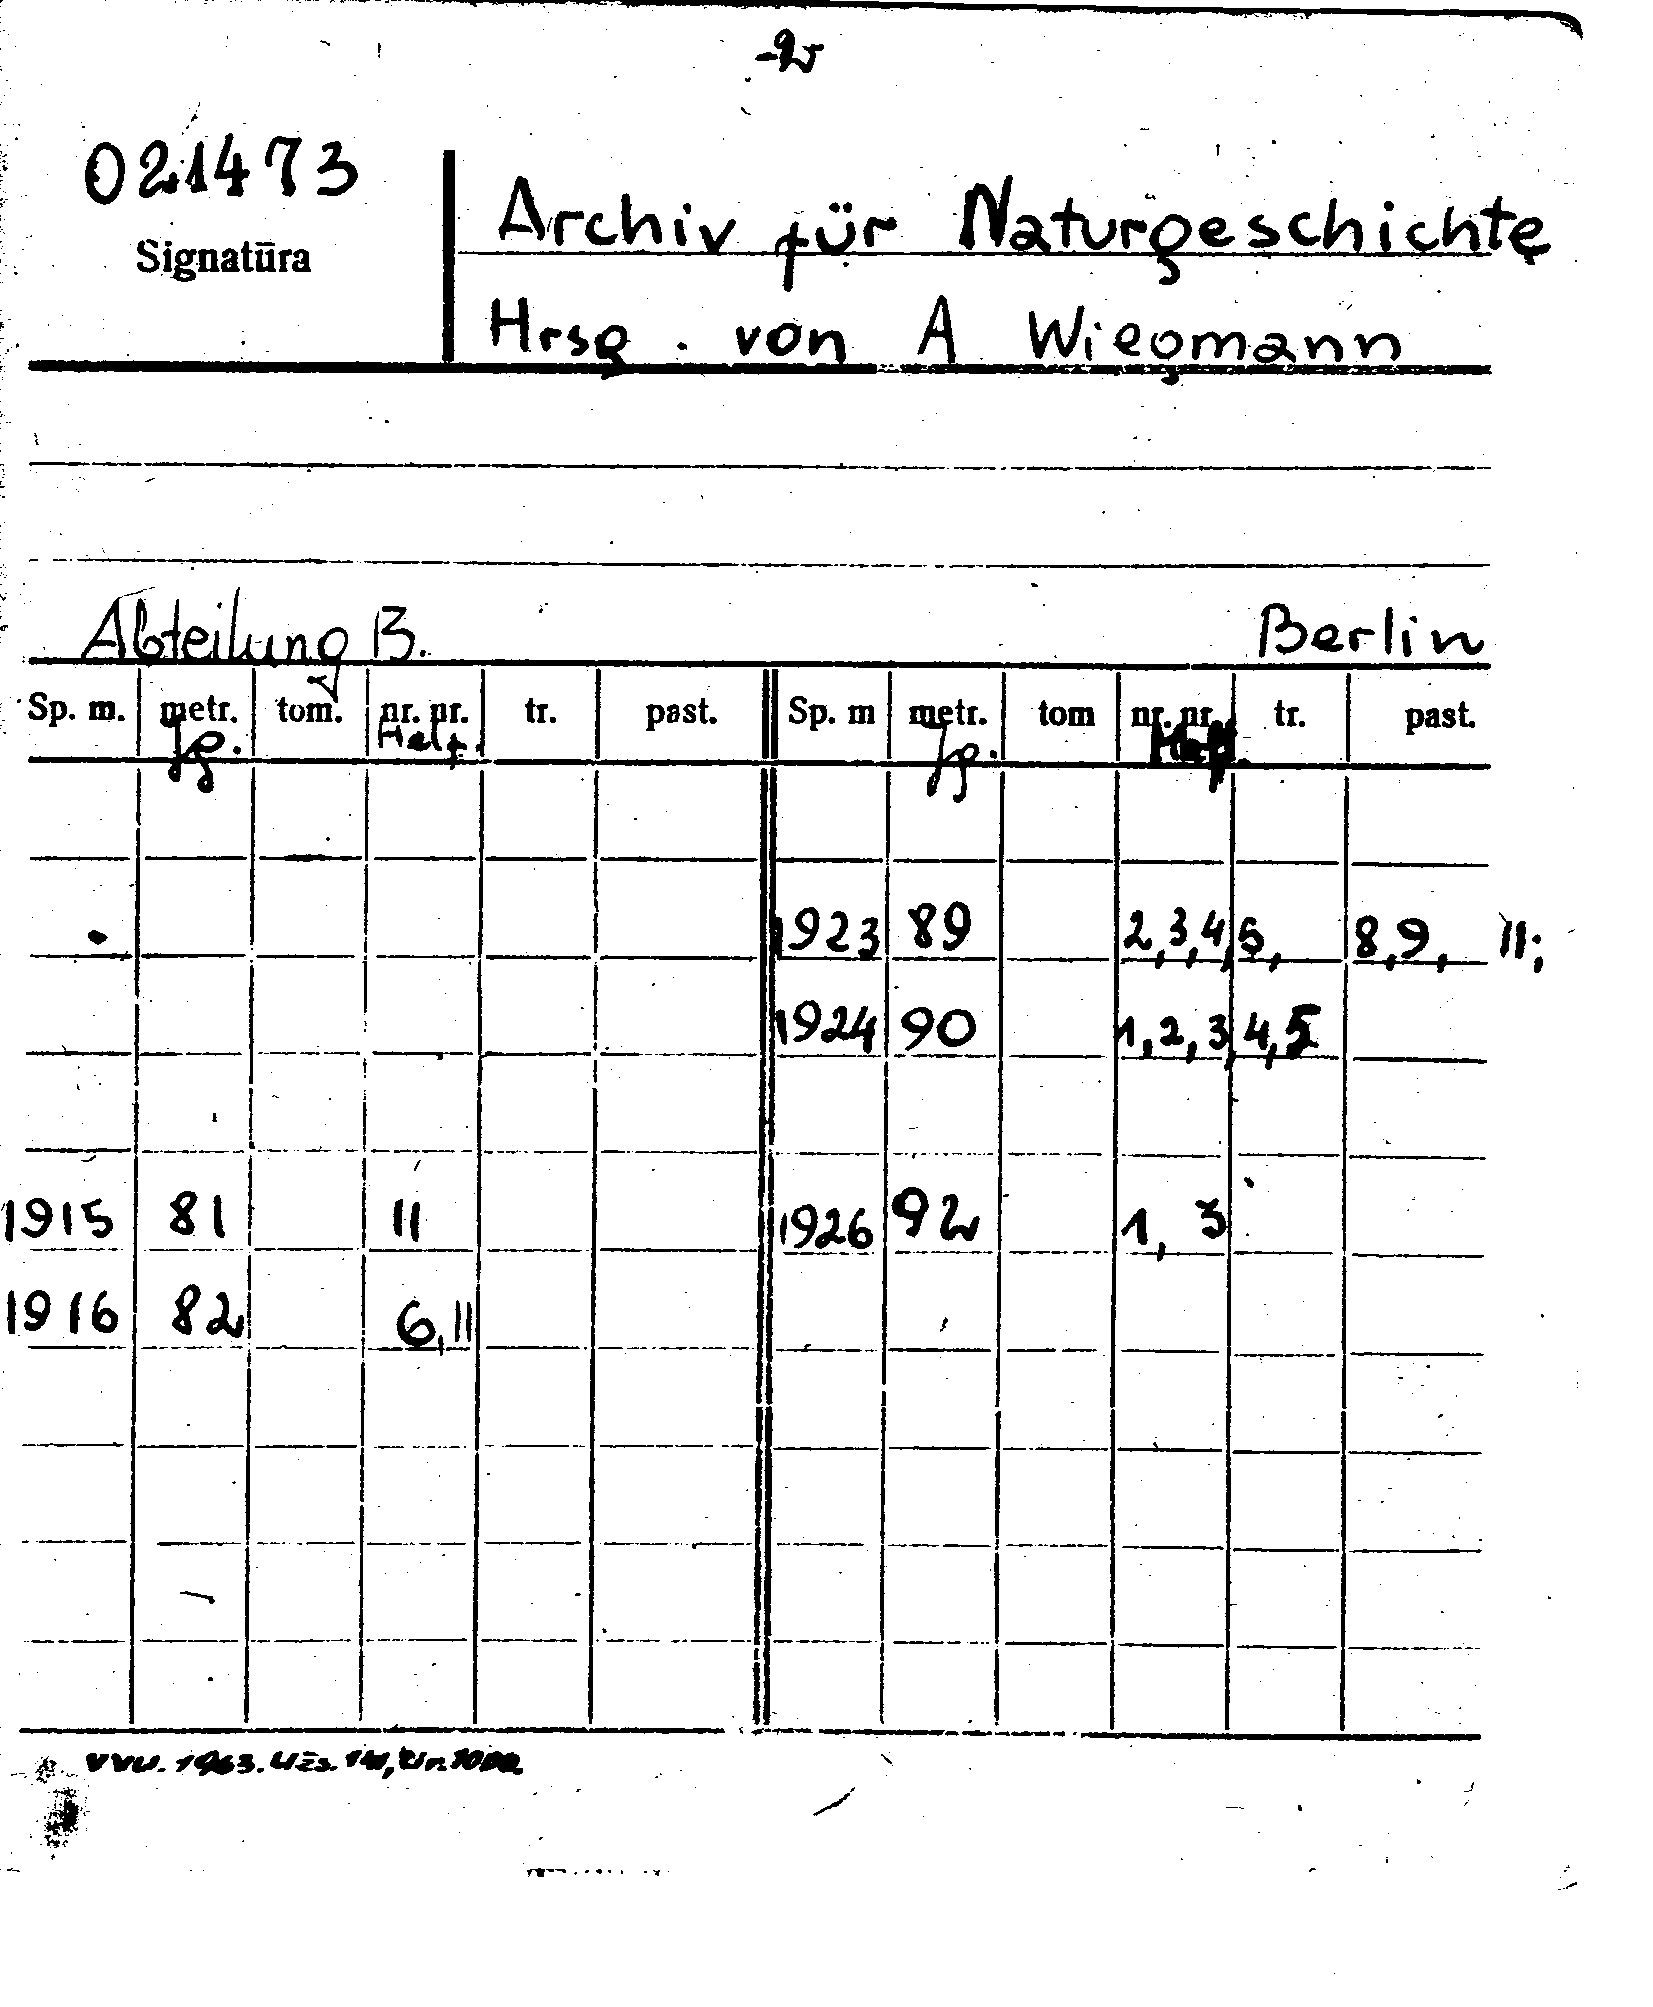 -2-
021473
Signatūra
Archiv für Naturgeschichte
Hrsg. von A Wiegmann
Abteilung B. Berlin
Sp. m. metr. tom. nr. nr. tr. past. Sp. m metr. tom nr. nr. tr. past.
Jg. Heft. Jg. Heft.
1923 89 2,3,4,5, 8,9, 11;
1924 90 1,2,3,4,5
1915 81 11 1926 92 1, 3
1916 82 6,11
VVU. 1963. Užs.